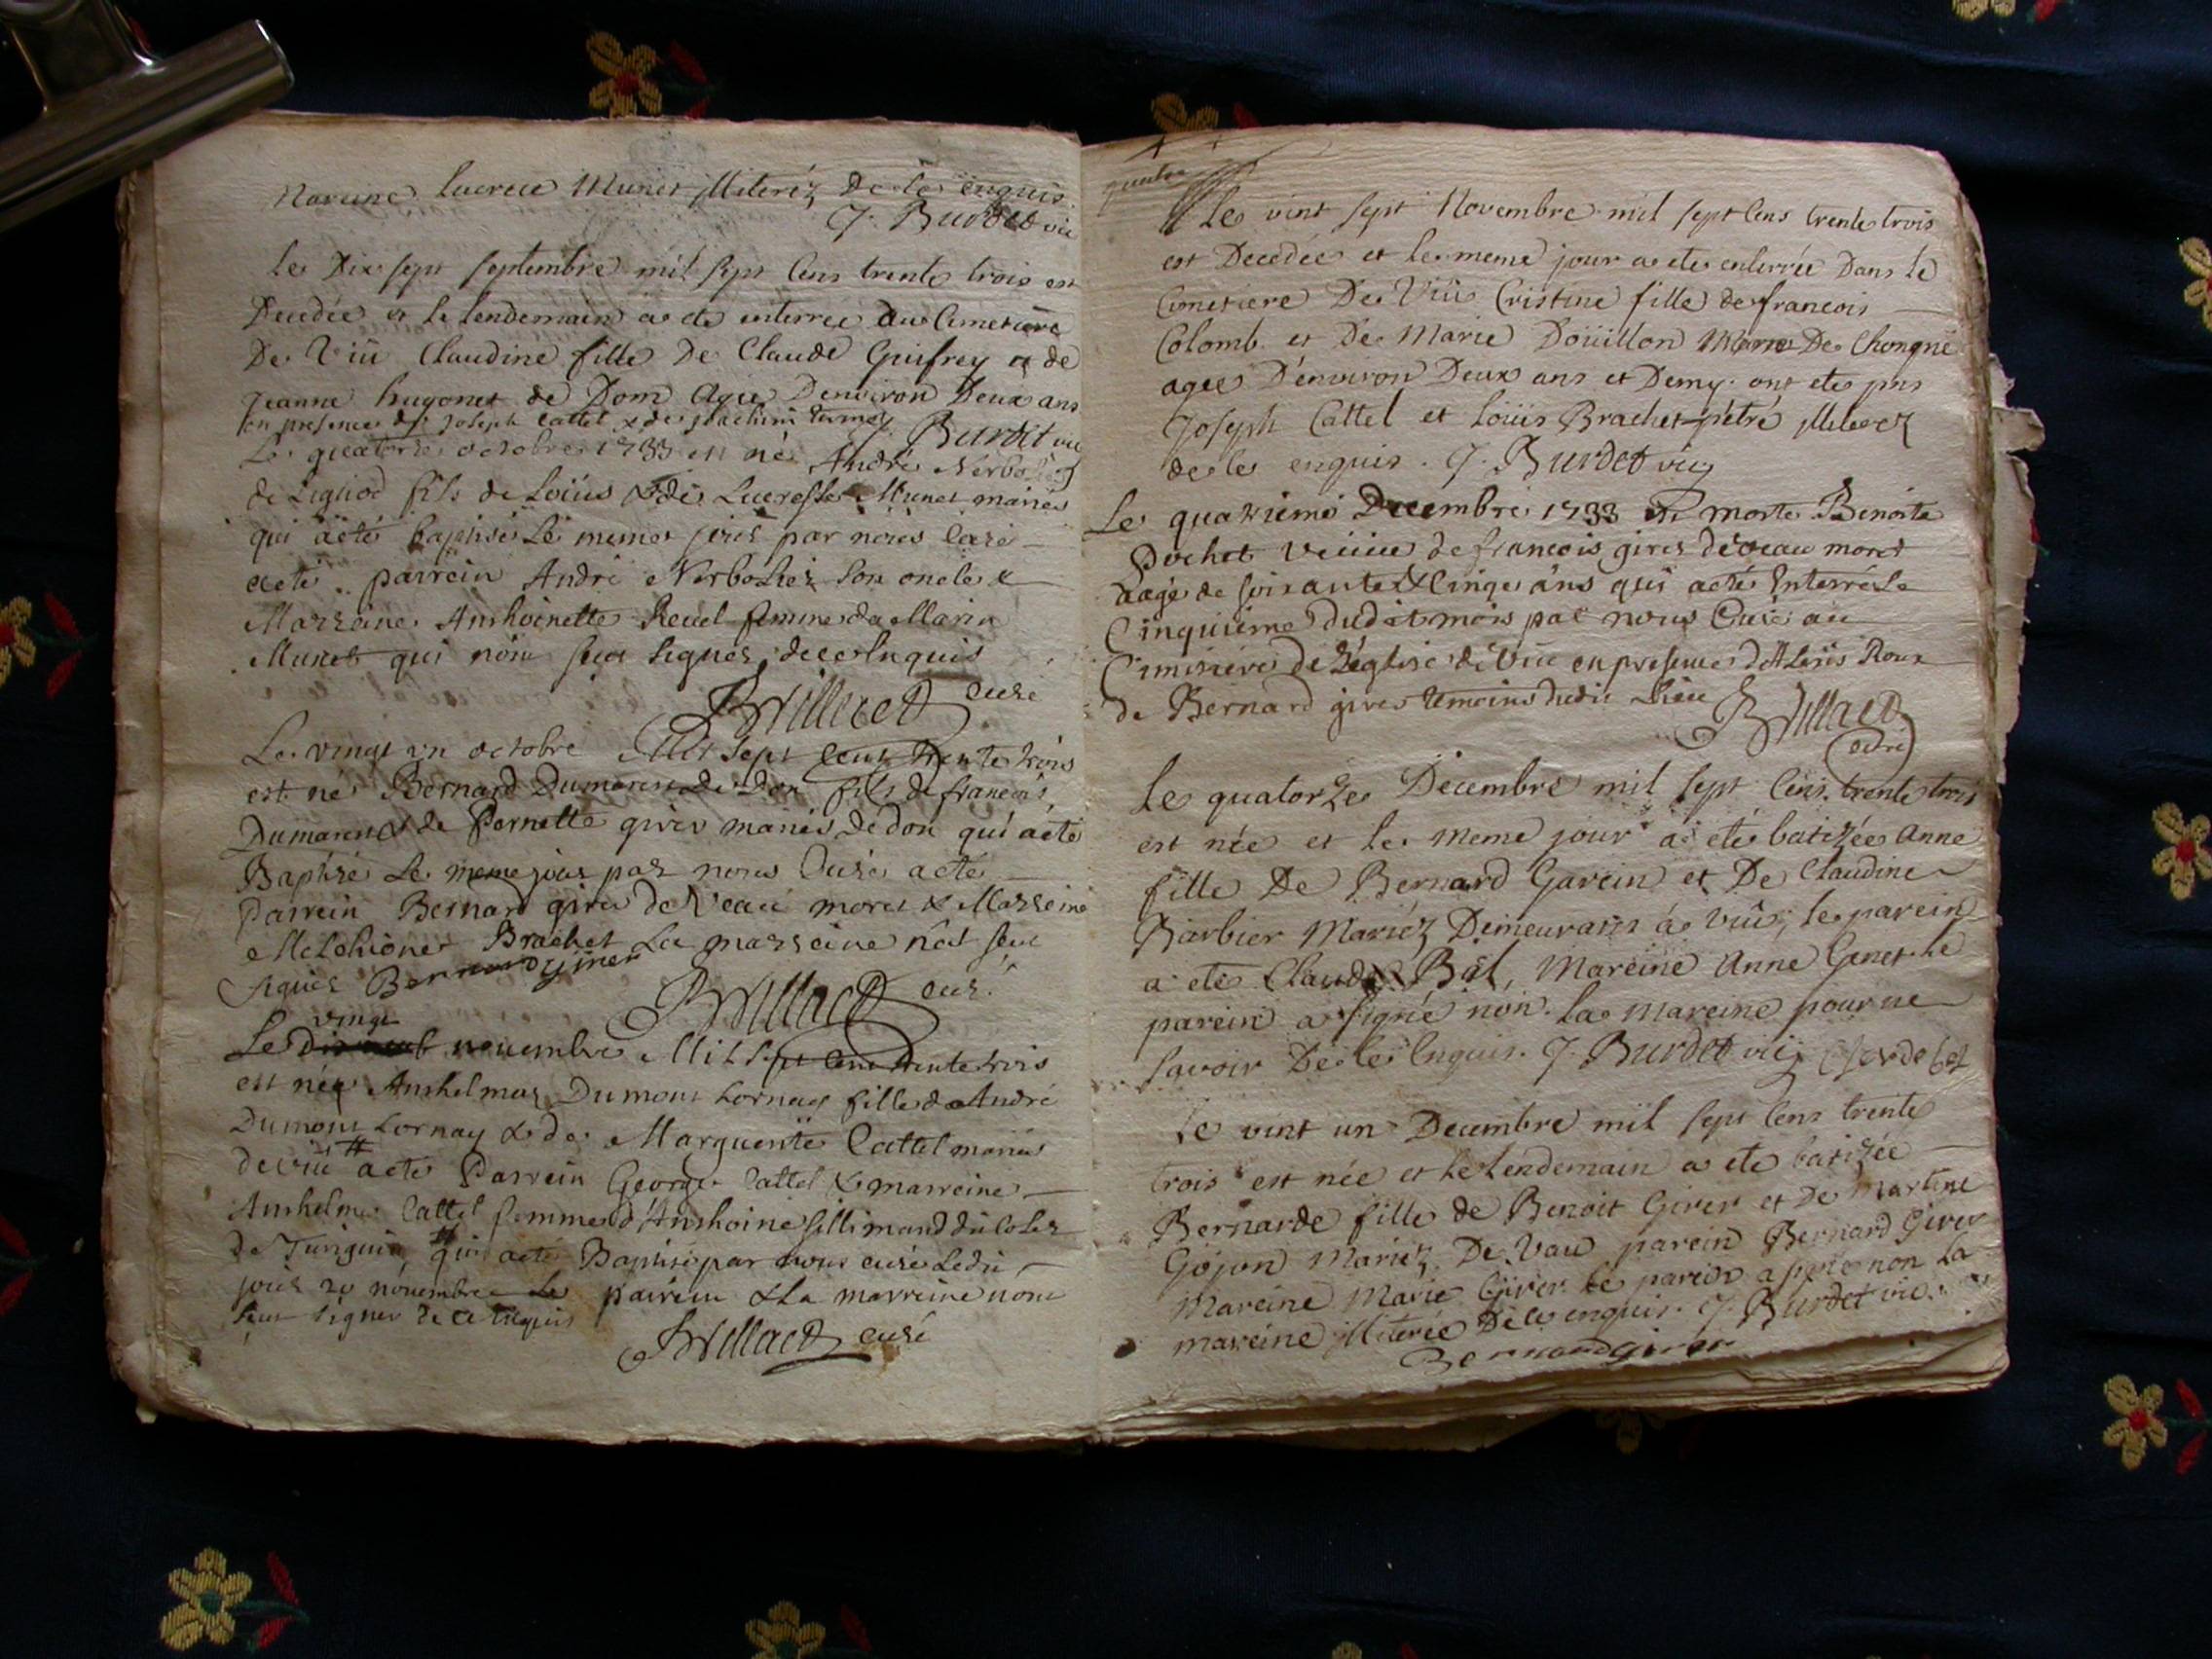 Mareine Lucrece Munet illiteréz De ce enquis.
J. Burdet vic
Le Dix sept septembre mil sept Cens trente trois est
Decedée et le lendemain a eté enterrée au Cimetiere
De Viü Claudine fille De Claude Guifrey et de
Jeanne hugonet de Dom Agée D'environ Deux ans
en presence de Joseph Cattel & de joachim
J. Burdet vic
Le quatorze octobre 1733 est né André
de Lignod fils de Loüis & de Lucresse Munet mariés
qui aété baptisé Le meme jour par nous Curé
aeté parrein André son oncle &
Marreine Anthoinette Revel femme de Marin
Munet qui n'ont sçeu signer de ce Enquis
Brillaet curé
Le vingt un octobre Mil Sept Cent trente trois
est né Bernard Dumarest de Don fils de francois
Dumarest & de Pernette girer mariés de don qui aété
Baptisé Le meme jour par nous Curé aeté
Parrein Bernard girer de Veau moret & Marreine
Melchionne Brachet La marreine n'at sçeu
signer Bernard girer
Brillaet curé
vingt
Le novembre Mil Sept Cent trente trois
est née Anthelmaz Dumont Lornay fille de André
Dumont Lornay & de Marguerite Cattel mariés
de viü # aeté Parrein George Cattel & marreine
Anthelme Cattel femme d'Anthoine
de # qui aeté Baptisé par nous curé Ledit
jour 20 novembre Le parrein & La marreine n'ont
sçeu signer de ce Enquis
Brillaet curé
quatre
Le vint sept Novembre mil sept Cens trente trois
est Decedée et le meme jour a eté enterrée Dans le
Cimetiere De Viü Cristine fille de francois
Colomb et De Marie Doüillon De Chongne
agée D'environ Deux ans et Demy. ont eté pns
Joseph Cattel et Loüis Brachet
de ce enquis. J. Burdet vic
Le quatrieme Decembre 1733 est morte Benoite
Pochet Veüue de francois girer de veau moret
aagé de soixante & Cinque ans qui aeté Enterré Le
Cinquieme dudit mois par nous Curé au
Cimitiere de L'église de Viü en presence d'Alexis Roux
de Bernard girer témoins dudit Lieu
Brillaet
curé
Le quatorze Decembre mil sept Cens trente trois
est née et le meme jour a eté batizée Anne
fille De Bernard Garcin et De Claudine
Barbier Mariéz Demeurans à Viû, le parein
a eté Claude Bal, Mareine Anne Genet le
parein a signé non la mareine pour ne
savoir De ce Enquis. J. Burdet vic
Le vint un Decembre mil sept Cens trente
trois est née et le lendemain a eté batizée
Bernarde fille de Benoit Girer et De Martine
Gojon Mariéz De Vau parein Bernard Girer
Mareine Marie Girer le parein a signé non la
mareine illiterée De ce enquis. J. Burdet vic.
Bernard girer